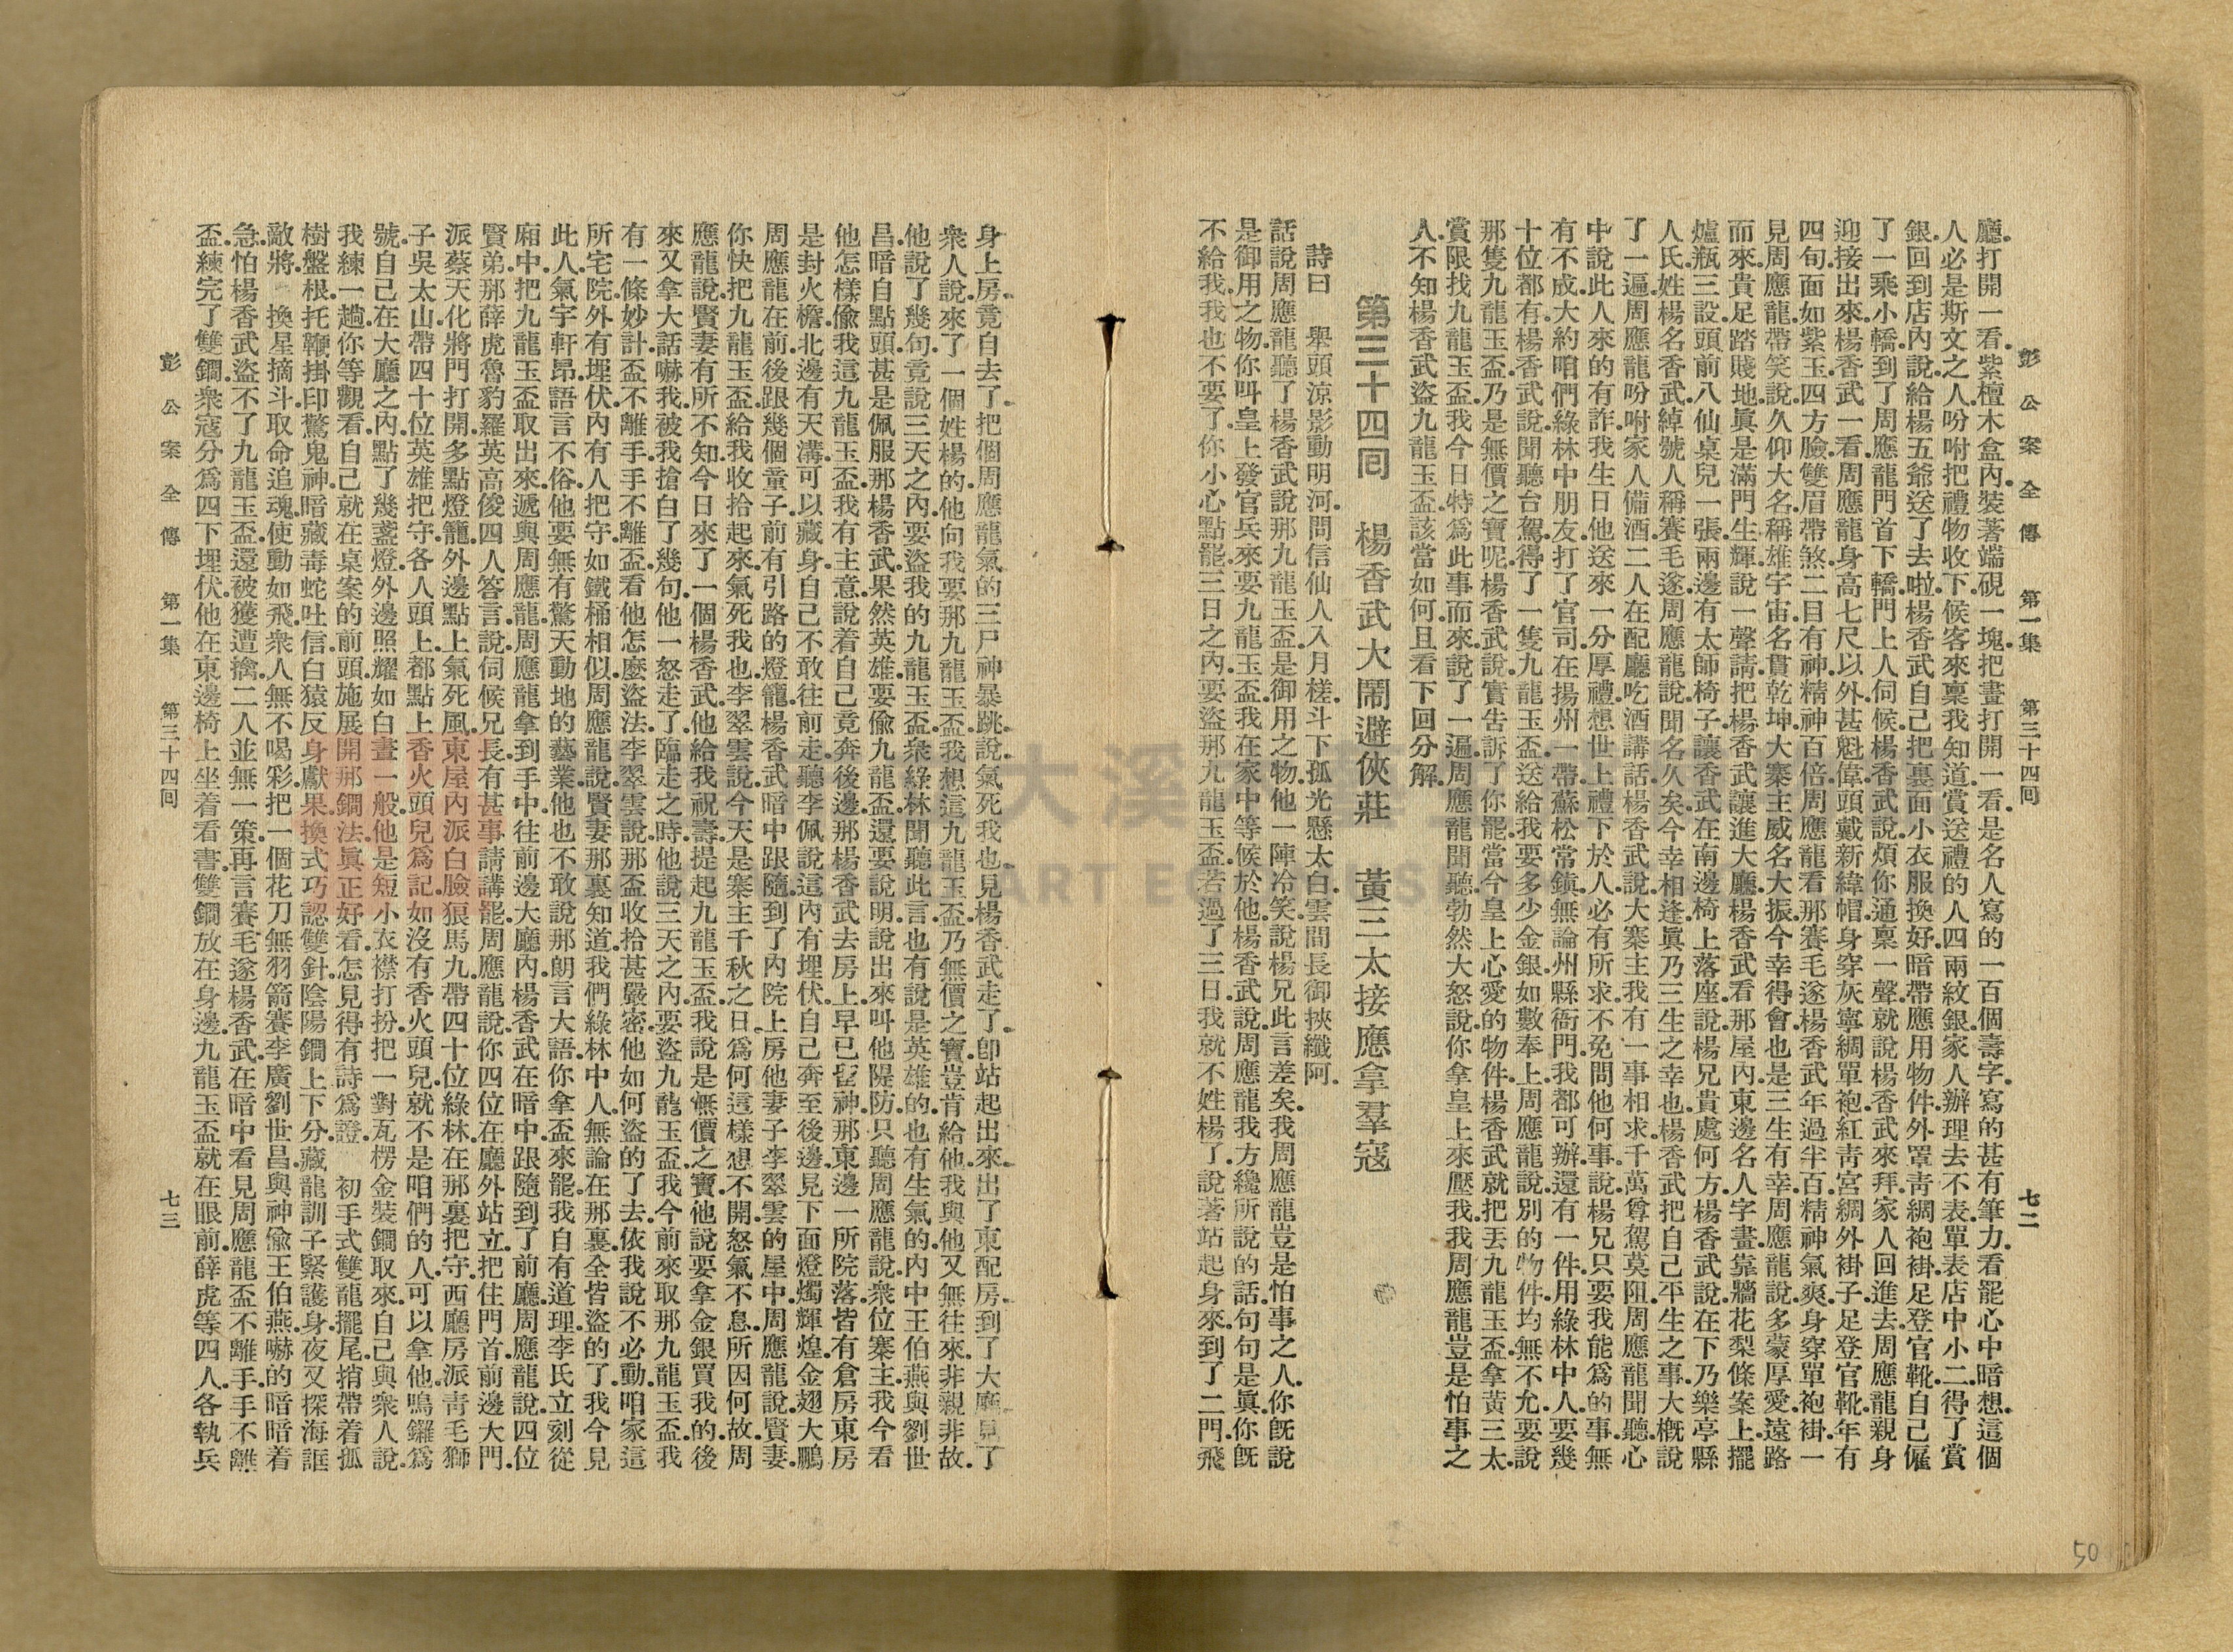 彭公案全傳　第一集　第三十四回　七二
廳.打開一看.紫檀木盒內.裝著端硯一塊.把畫打開一看.是名人寫的一百個壽字.寫的甚有筆力.看罷心中暗想.這個
人必是斯文之人.吩咐把禮物收下.候客來稟我知道.賞送禮的人四兩紋銀.家人辦理去.不表.單表店中小二.得了賞
銀.回到店內.說給楊五爺送了去啦.楊香武自己把裏面小衣服換好.暗帶應用物件.外罩青綢袍褂.足登官靴.自己僱
了一乘小轎.到了周應龍門首下轎.門上人伺候.楊香武說.煩你通稟一聲.就說楊香武來拜.家人回進去.周應龍親身
迎接出來.楊香武一看.周應龍身高七尺以外.甚魁偉.頭戴新緯帽.身穿灰寧綢單袍.紅青宮綢外褂子.足登官靴.年有
四旬.面如紫玉.四方臉.雙眉帶煞.二目有神.精神百倍.周應龍看那賽毛遂楊香武.年過半百.精神氣爽.身穿單袍褂.一
見周應龍帶笑說.久仰大名.稱雄宇宙.名貫乾坤.大寨主威名大振.今幸得會.也是三生有幸.周應龍說.多蒙厚愛.遠路
而來.貴足踏賤地.眞是滿門生輝.說一聲請.把楊香武讓進大廳.楊香武看那屋內東邊名人字畫.靠牆花梨條案上.擺
爐瓶三設.頭前八仙桌兒一張.兩邊有太師椅子.讓香武在南邊椅上落座.說楊兄貴處何方.楊香武說.在下乃樂亭縣
人氏.姓楊名香武.綽號人稱賽毛遂.周應龍說.聞名久矣.今幸相逢.眞乃三生之幸也.楊香武把自己平生之事.大概說
了一遍.周應龍吩咐家人備酒.二人在配廳吃酒講話.楊香武說.大寨主.我有一事相求.千萬尊駕莫阻.周應龍聞聽.心
中說.此人來的有詐.我生日他送來一分厚禮.想世上禮下於人.必有所求.不免問他何事.說楊兄只要我能爲的事.無
有不成.大約咱們綠林中朋友.打了官司.在揚州一帶蘇松常鎭.無論州縣衙門.我都可辦.還有一件.用綠林中人.要幾
十位都有.楊香武說.聞聽台駕得了一隻九龍玉盃.送給我.要多少金銀.如數奉上.周應龍說.別的物件.均無不允.要說
那隻九龍玉盃.乃是無價之寶呢.楊香武說.實告訴了你罷.當今皇上心愛的物件.楊香武就把丟九龍玉盃.拿黃三太.
賞限找九龍玉盃.我今日特爲此事而來.說了一遍.周應龍聞聽.勃然大怒.說你拿皇上來壓我.我周應龍.豈是怕事之
人.不知楊香武盜九龍玉盃.該當如何.且看下回分解.
第三十四回　楊香武大鬧避俠莊　黃三太接應拿羣寇
詩曰　舉頭涼影動明河.問信仙人入月槎.斗下孤光懸太白.雲間長御挾纖阿.
話說周應龍聽了楊香武說.那九龍玉盃.是御用之物.他一陣冷笑.說楊兄此言差矣.我周應龍豈是怕事之人.你旣說
是御用之物.你叫皇上發官兵來.要九龍玉盃.我在家中等候於他.楊香武說.周應龍.我方纔所說的話.句句是眞.你旣
不給我.我也不要了.你小心點罷.三日之內.要盜那九龍玉盃.若過了三日.我就不姓楊了.說著站起身來.到了二門.飛
身上房.竟自去了.把個周應龍氣的三尸神暴跳.說氣死我也.見楊香武走了.卽站起出來.出了東配房.到了大廳.見了
衆人說.來了一個姓楊的.他向我要那九龍玉盃.我想這九龍玉盃.乃無價之寶.豈肯給他.我與他又無往來.非親非故.
他說了幾句.竟說三天之內.要盜我的九龍玉盃.衆綠林聞聽此言.也有說是英雄的.也有生氣的.內中王伯燕與劉世
昌.暗自點頭.甚是佩服.那楊香武果然英雄.要偷九龍盃.還要說明.說出來.叫他隄防.只聽周應龍說.衆位寨主.我今看
他怎樣偷我這九龍玉盃.我有主意.說着自己竟奔後邊.那楊香武去房上.早已留神.那東邊一所院落.皆有倉房.東房
是封火檐.北邊有天溝.可以藏身.自己不敢往前走.聽李佩說.這內有埋伏.自己奔至後邊.見下面燈燭輝煌.金翅大鵬
周應龍在前.後跟幾個童子.前有引路的燈籠.楊香武暗中跟隨.到了內院上房.他妻子李翠雲的屋中.周應龍說.賢妻.
你快把九龍玉盃.給我收拾起來.氣死我也.李翠雲說.今天是寨主千秋之日.爲何這樣想不開.怒氣不息.所因何故.周
應龍說.賢妻有所不知.今日來了一個楊香武.他給我祝壽.提起九龍玉盃.我說是無價之寶.他說要拿金銀買我的.後
來又拿大話嚇我.被我搶白了幾句.他一怒走了.臨走之時.他說三天之內.要盜九龍玉盃.我今前來取那九龍玉盃.我
有一條妙計.盃不離手.手不離盃.看他怎麼盜法.李翠雲說.那盃收拾甚嚴密.他如何盜的了去.依我說不必動.咱家這
所宅院.外有埋伏.內有人把守.如鐵桶相似.周應龍說.賢妻那裏知道.我們綠林中人.無論在那裏.全皆盜的了.我今見
此人氣宇軒昂.語言不俗.他要無有驚天動地的藝業.他也不敢說那朗言大語.你拿盃來罷.我自有道理.李氏立刻從
廂中.把九龍玉盃取出來.遞與周應龍.周應龍拿到手中.往前邊大廳內.楊香武在暗中.跟隨到了前廳.周應龍說.四位
賢弟.那薛虎魯豹羅英高俊四人答言.說.伺候兄長.有甚事請講罷.周應龍說.你四位在廳外站立.把住門首.前邊大門.
派蔡天化.將門打開.多點燈籠.外邊點上氣死風.東屋內派白臉狼馬九.帶四十位綠林.在那裏把守.西廳房派青毛獅
子吳太山.帶四十位英雄把守.各人頭上都點上香火頭兒爲記.如沒有香火頭兒.就不是咱們的人.可以拿他.鳴鑼爲
號.自己在大廳之內.點了幾盞燈.外邊照耀如白晝一般.他是短小衣襟打扮.把一對瓦楞金裝鐧取來.自己與衆人說.
我練一趟.你等觀看.自己就在桌案的前頭.施展開那鐧法.眞正好看.怎見得.有詩爲證.　初手式雙龍擺尾.捎帶着孤
樹盤根.托鞭掛印驚鬼神.暗藏毒蛇吐信.白猿反身獻果.換式巧認雙針.陰陽鐧上下分.藏龍訓子緊護身.夜叉探海誆
敵將.　換星摘斗取命追魂.使動如飛.衆人無不喝彩.把一個花刀無羽箭賽李廣劉世昌.與神偷王伯燕.嚇的暗暗着
急.怕楊香武盜不了九龍玉盃.還被獲遭擒.二人並無一策.再言賽毛遂楊香武.在暗中看見周應龍盃不離手.手不離
盃.練完了雙鐧.衆寇分爲四下埋伏.他在東邊椅上坐着看書.雙鐧放在身邊.九龍玉盃就在眼前.薛虎等四人.各執兵
彭公案全傳　第一集　第三十四回　七三
50